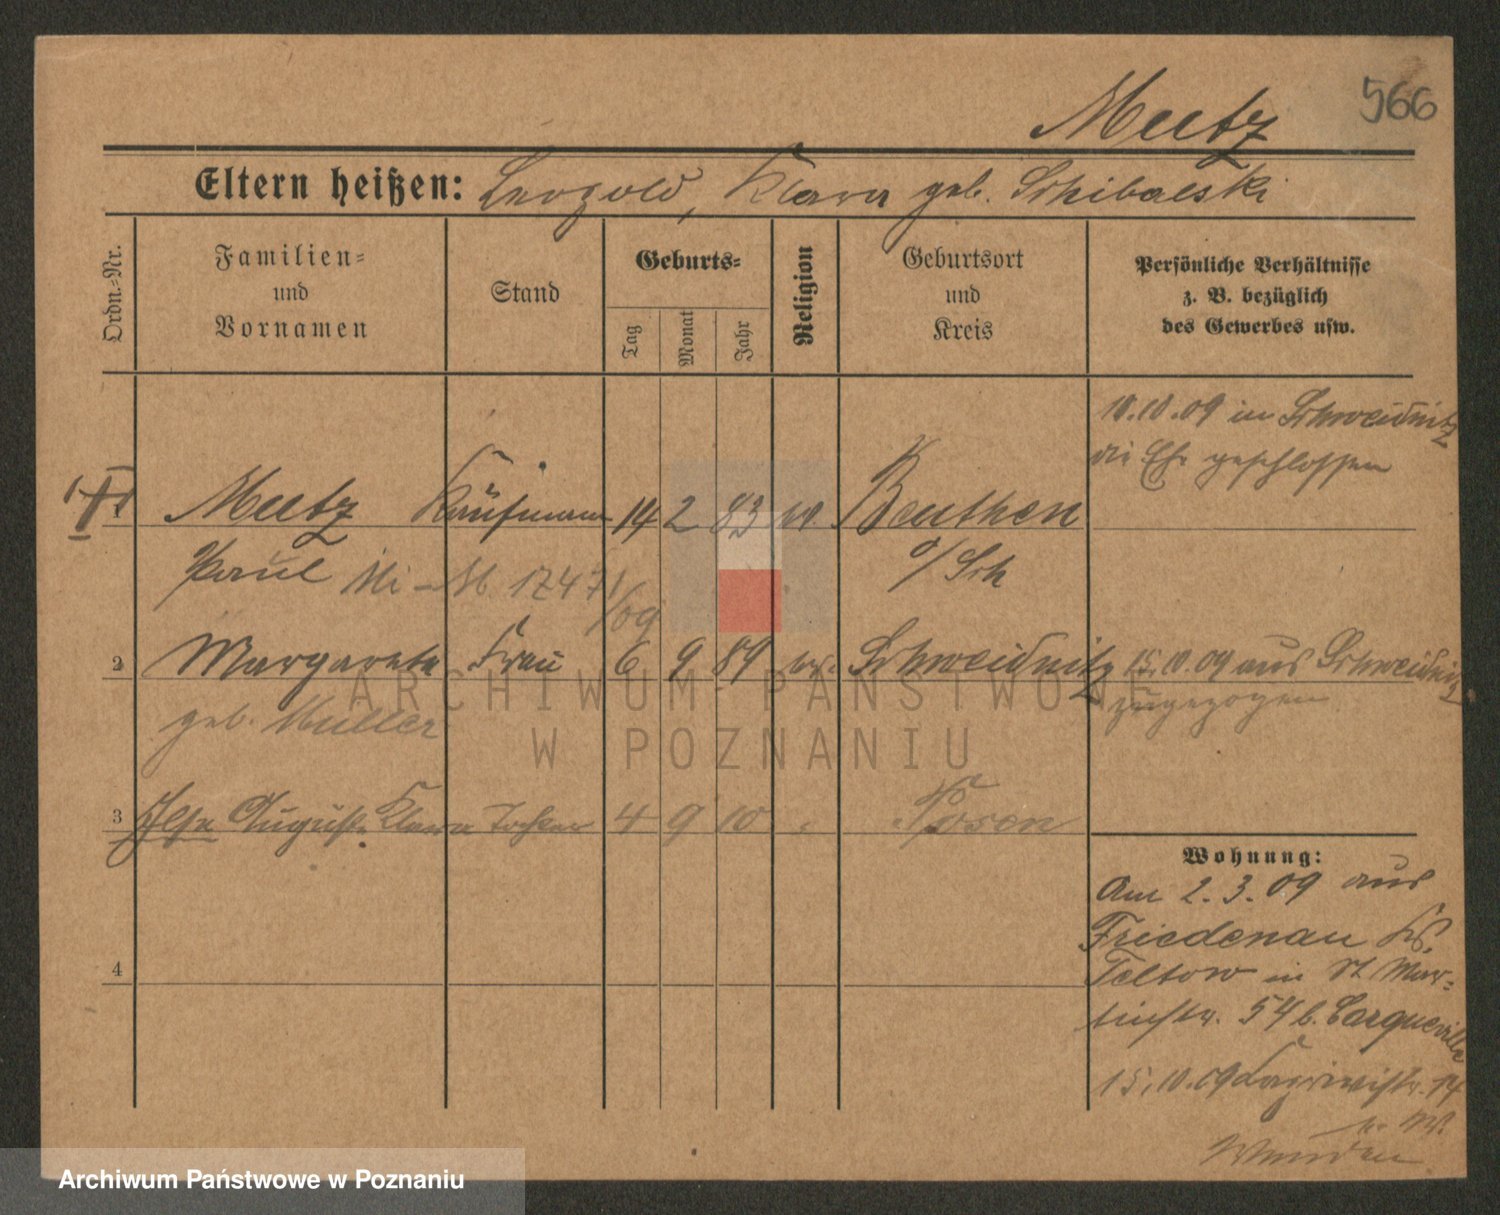 566
Meetz
Eltern heißen: Leopold, Klara geb. Schibalski
Ordn.-Nr.
Familien-
und
Vornamen
Stand
Geburts-
Tag
Monat
Jahr
Religion
Geburtsort
und
Kreis
Persönliche Verhältnisse
z. B. bezüglich
des Gewerbes usw.
10.10.09 in Schweidnitz
die Ehe geschlossen
1 Meetz Kaufmann 14 2 83 Beuthen
Paul 1747/09 o/Sch
2 Margarete Frau 6 9 84 Schweidnitz 15.10.09 aus Schweidnitz
geb. Müller zugezogen
3 Ilse Auguste Klara Tochter 4 9 10 Posen
Wohnung:
Am 2.3.09 aus
Friedenau Ks.
4
Teltow in St Mar-
tinstr. 54 b.
15.10.09 14
ARCHIWUM PAŃSTWOWE
W POZNANIU
Archiwum Państwowe w Poznaniu